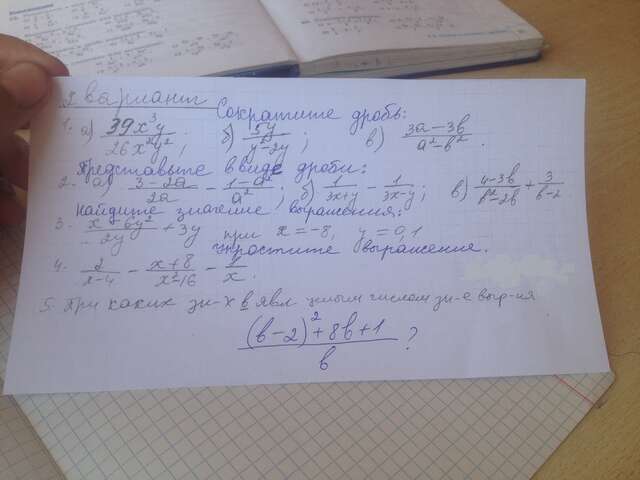 2 вариант
Сократите дробь:
1. а) 39x³y / 26x²y² ; б) 5y / y²-2y ; в) 3a-3b / a²-b² .
Представьте в виде дроби:
2. а) 3-2a / 2a - 1-a² / a² ; б) 1 / 3x+y - 1 / 3x-y ; в) 4-3b / b²-2b + 3 / b-2
Найдите значение выражения:
3. x-6y² / 2y + 3y при x=-8, y=0,1
Упростите выражение.
4. 2 / x-4 - x+8 / x²-16 - 1 / x .
5. При каких зн-х b явл целым числом зн-е выр-ия
(b-2)²+8b+1 / b ?